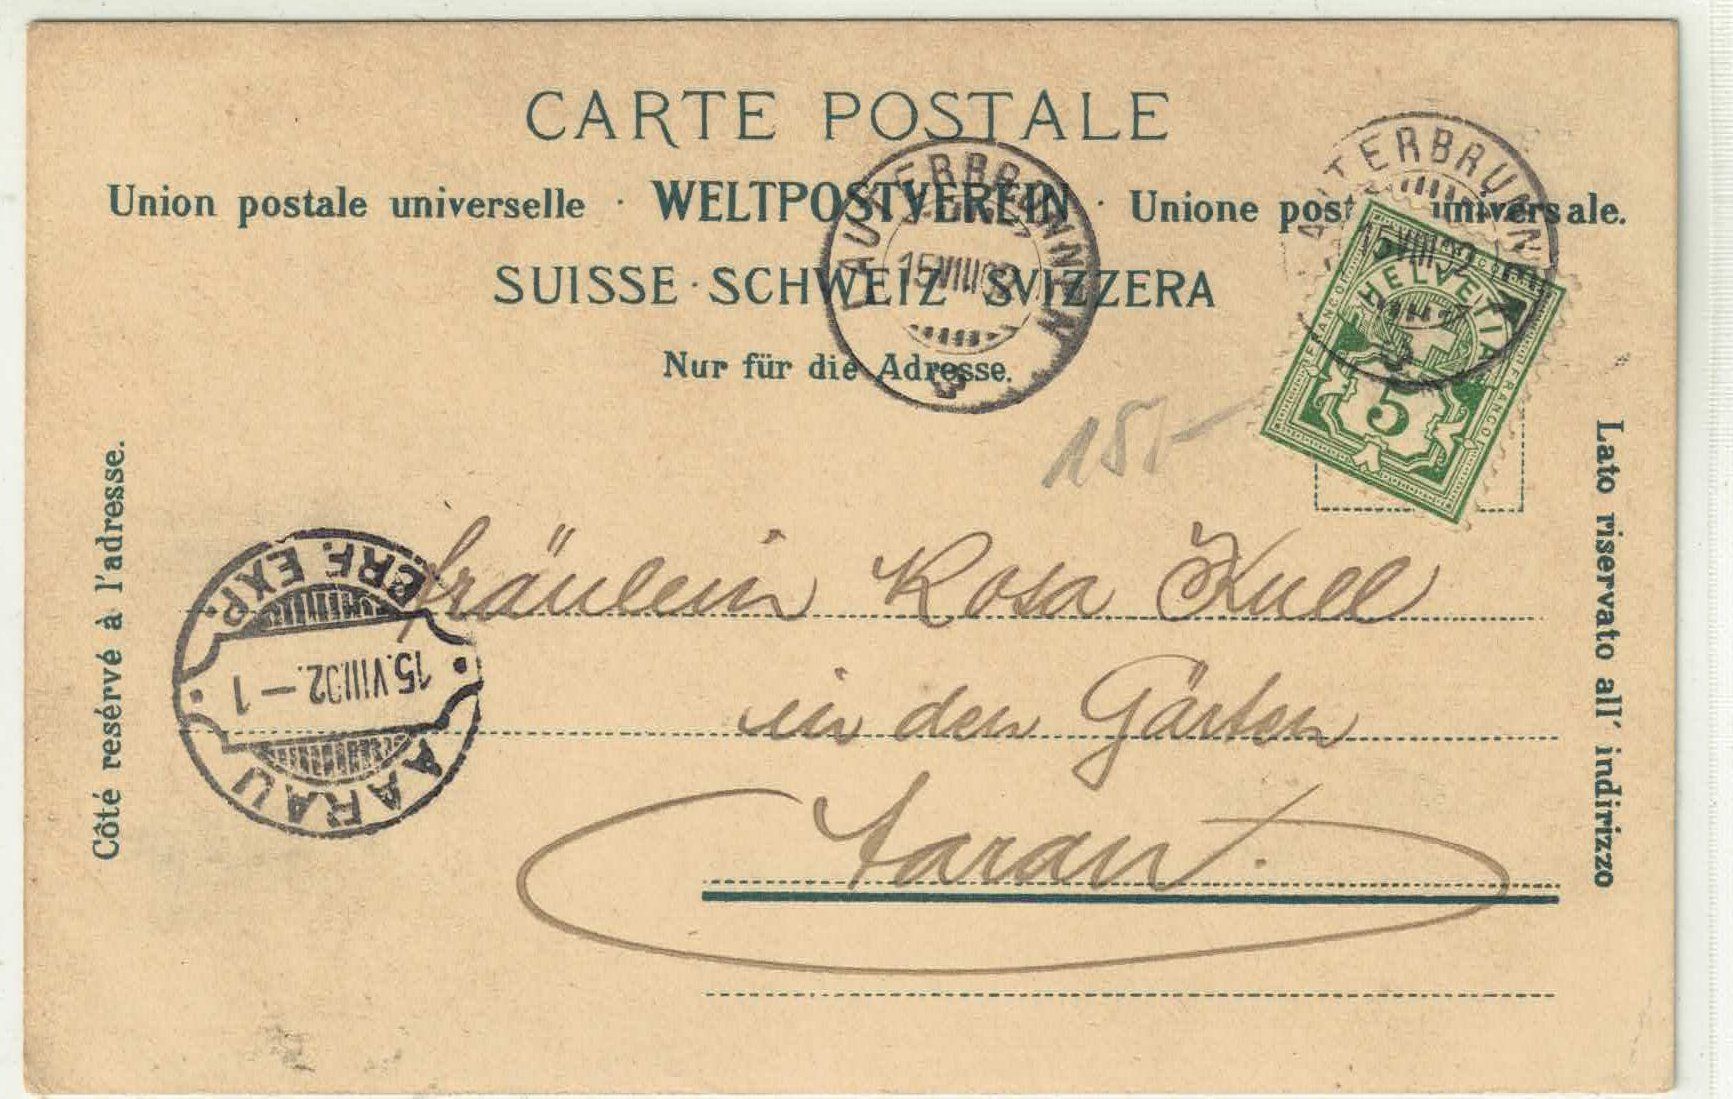 CARTE POSTALE
Union postale universelle · WELTPOSTVEREIN · Unione postale universale.
SUISSE · SCHWEIZ · SVIZZERA
Nur für die Adresse.
LAUTERBRUNNEN
15 VIII 02
LAUTERBRUNNEN
15 VIII 02
HELVETIA
FRANCO
5
15.-
Côté resérvé à l'adresse.
Lato riservato all' indirizzo
BRF. EXP.
15.VIII.02.-1
AARAU
Fräulein Rosa Kull
in den Gärten
Aarau.